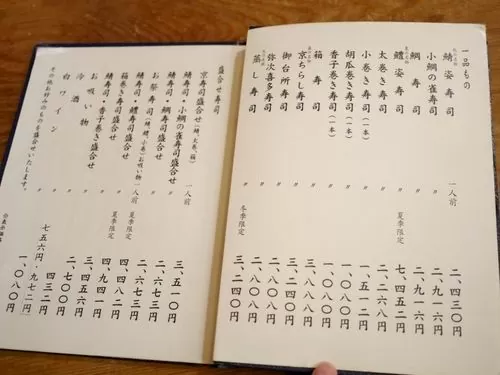 一品もの
鯖姿寿司 一人前 二、四三〇円
小鯛の雀寿司 〃 二、九一六円
鯛寿司 〃 二、九一六円
鱧姿寿司 〃 夏季限定 七、四五二円
太巻き寿司 〃 二、二六八円
小巻き寿司(一本) 一、五一二円
胡瓜巻き寿司(一本) 一、〇八〇円
香子巻き寿司(一本) 一、〇八〇円
箱寿司 〃
京ちらし寿司 〃 三、二四〇円
御台所寿司 〃 二、八〇八円
弥次喜多寿司 〃 二、八〇八円
蒸し寿司 〃 冬季限定 三、二四〇円
盛合せ寿司
京寿司盛合せ(鯖、太巻、箱) 一人前 三、五一〇円
鯖寿司・小鯛の雀寿司盛合せ 〃
鯖寿司・鯛寿司盛合せ 〃 二、六七三円
お祭寿司(鯖、鯛、小巻)お吸い物 一人前
鯖寿司・鱧寿司盛合せ 〃 夏季限定
箱巻き寿司盛合せ 〃 夏季限定
鯖寿司・香子巻き寿司盛合せ 〃
お吸い物 〃 四三二円
冷酒 二、七〇〇円
白ワイン 七五六円・九七二円
その他お好みのものを盛合せいたします。 一、〇八〇円